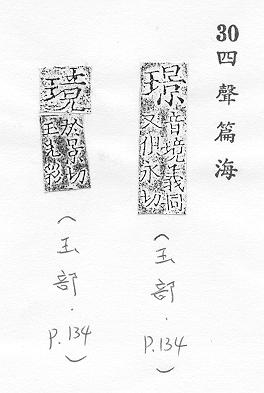 30四聲篇海
璟
音境義同
又俱永切
（玉部．P.134）
璄
於景切
玉光彩
（玉部．P.134）